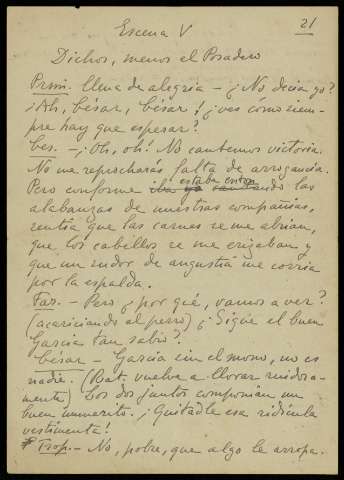 21
Escena V
Dichos, menos el Posadero
Prim. llena de alegria - ¿No decia yo?
¡Ah, César, César! ¿ves cómo siem-
pre hay que esperar?
Ces. - ¡Oh, oh! No cantemos victoria.
No me reprocharás falta de arrogancia.
estaba enton
Pero conforme iba yo cantando las
alabanzas de nuestras compañias,
sentia que las carnes se me abrian,
que los cabellos se me erizaban y
que un sudor de angustia me corria
por la espalda.
Far. - Pero ¿por qué, vamos a ver?
(acariciando al perro) ¿Sigue el buen
Garcia tan sabio?
César - Garcia sin el mono, no es
nadie. (Bat. vuelve a llorar ruidosa-
mente) Los dos juntos componian un
buen numerito. ¡Quitadle esa ridicula
vestimenta!
Trop. - No, pobre, que algo le arropa.